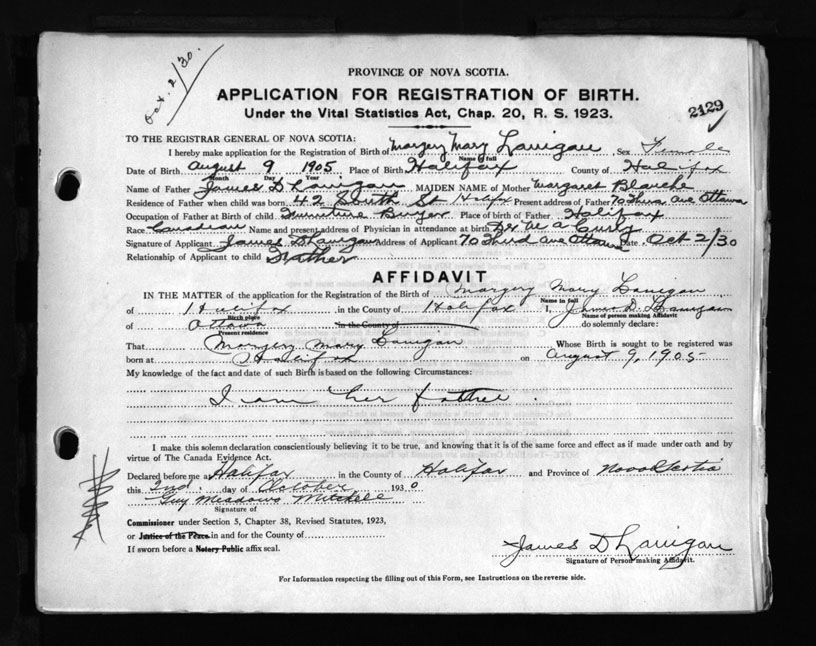 Oct. 2/30.
PROVINCE OF NOVA SCOTIA.
APPLICATION FOR REGISTRATION OF BIRTH.
Under the Vital Statistics Act, Chap. 20, R. S. 1923.
2129
TO THE REGISTRAR GENERAL OF NOVA SCOTIA:
I hereby make application for the Registration of Birth of Margery Mary Lanigan, Sex Female
Name in full
Date of Birth August 9 1905 Place of Birth Halifax County of Halifax
Month Day Year
Name of Father James D Lanigan MAIDEN NAME of Mother Margaret Blanche
Residence of Father when child was born 42 South St Halifax Present address of Father 70 Third ave Ottawa
Occupation of Father at Birth of child Furniture Buyer Place of birth of Father Halifax
Race Canadian Name and present address of Physician in attendance at birth Dr W a Curry
Signature of Applicant James D Lanigan Address of Applicant 70 Third ave Ottawa Date Oct 2/30
Relationship of Applicant to child Father
AFFIDAVIT
IN THE MATTER of the application for the Registration of the Birth of Margery Mary Lanigan
Name in full
of Halifax in the County of Halifax I, James D. Lanigan
Birth place Name of person making Affidavit
of Ottawa in the County of do solemnly declare:
Present residence
That Margery Mary Lanigan Whose Birth is sought to be registered was
born at Halifax on August 9, 1905
My knowledge of the fact and date of such Birth is based on the following Circumstances:
I am her father.
I make this solemn declaration conscientiously believing it to be true, and knowing that it is of the same force and effect as if made under oath and by
virtue of The Canada Evidence Act.
Declared before me at Halifax in the County of Halifax and Province of Nova Scotia
this 2nd. day of October 1930
Guy Meadows Mitchell
Signature of
Commissioner under Section 5, Chapter 38, Revised Statutes, 1923,
or Justice of the Peace in and for the County of
If sworn before a Notary Public affix seal.
James D Lanigan
Signature of Person making Affidavit.
For Information respecting the filling out of this Form, see Instructions on the reverse side.